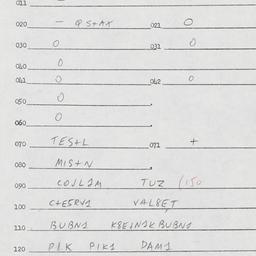 011
020 — 021 0
030 0 031 0
040 0
041 0 042 0
050 0
060 0
070 TES+L 071 +
080 MIS+N
090 COJL1M TUZ (150
100 VAL8ET
110 BUBN1 BUBN1
120 PIK PIK1 DAM1